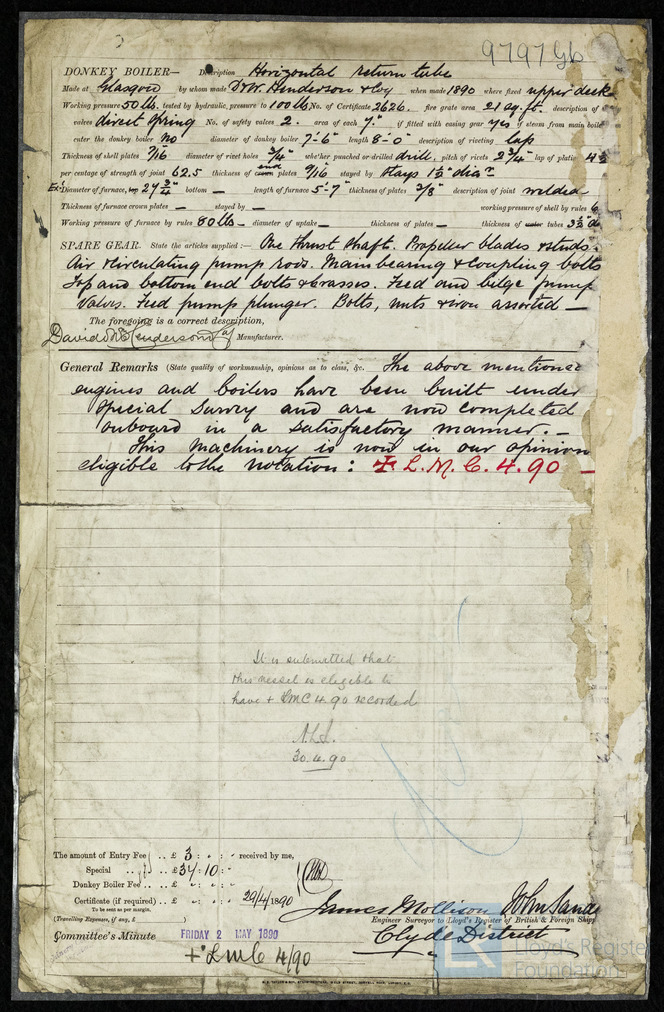 9797 Gb
DONKEY BOILER— Description Horizontal return tube
Made at Glasgow by whom made D & W. Henderson & Coy when made 1890 where fixed upper deck
Working pressure 50 lb. tested by hydraulic pressure to 100 lb No. of Certificate 2626. fire grate area 21 sq. ft. description of
valves direct spring No. of safety valves 2. area of each 7." if fitted with easing gear yes if steam from main boilers
enter the donkey boiler no diameter of donkey boiler 7'-6" length 8'-0" description of riveting lap
Thickness of shell plates 7/16 diameter of rivet holes 3/4" whether punched or drilled drill, pitch of rivets 2 3/4" lap of plating 4
per centage of strength of joint 62.5 thickness of end plates 9/16 stayed by stays 1 1/2" dia
Diameter of furnace, 24 3/4" bottom — length of furnace 5'-7" thickness of plates 3/8" description of joint welded
Thickness of furnace crown plates — stayed by — working pressure of shell by rules 6
Working pressure of furnace by rules 80 lb — diameter of uptake — thickness of plates — thickness of water tubes 3 1/2" d
SPARE GEAR. State the articles supplied:— One thrust shaft. Propeller blades & studs.
Air & circulating pump rods. Main bearing & coupling bolts
Top and bottom end bolts & brasses. Feed and bilge pump
valves. Feed pump plunger. Bolts, nuts & iron assorted —
The foregoing is a correct description,
David & W Henderson & Co Manufacturer.
General Remarks (State quality of workmanship, opinions as to class, &c. The above mentioned
engines and boilers have been built under
Special Survey and are now completed
onboard in a satisfactory manner. —
This machinery is now in our opinion
eligible to the notation: + L.M.C. 4.90 —
It is submitted that
this vessel is eligible to
have + LMC 4.90 recorded
30.4.90
The amount of Entry Fee .. £ 3 : " : " received by me,
Special .. £ 34 : 10 : "
Donkey Boiler Fee .. £ " : " : "
Certificate (if required) .. £ " : " : " 29/4/1890
To be sent as per margin.
(Travelling Expenses, if any, £ )
James Mollison John Sand
Engineer Surveyor to Lloyd's Register of British & Foreign Shipping
Clyde District
Committee's Minute FRIDAY 2 MAY 1890
+ LMC 4/90
Lloyd's Register
Foundation